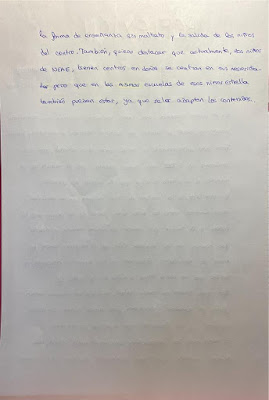 la forma de enseñanza su maltrato y la salida de los niños
del centro. También, quiero destacar que actualmente, los niños
de NEAE, tienen centros en donde se centran en sus necesidades
Lo peor que en las mismas escuelas de esos niños estrella
también puedan estar, ya que se les adaptan los contenidos.